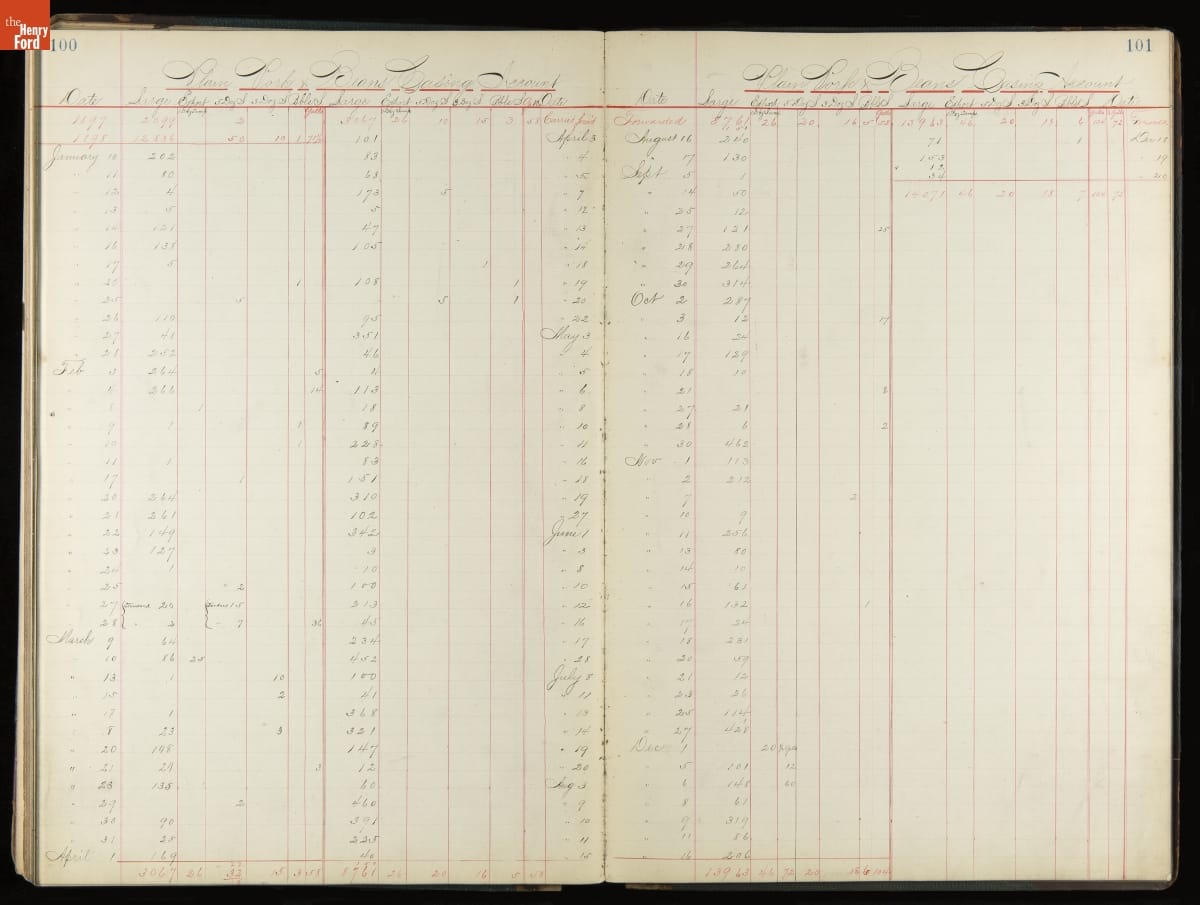 the Henry Ford
100
Plain Works & Beans Casing Account
Date Large Export 5 Day S 3 Day S Ables Large Export 5 Day S 3 Day S Ables Date
1897 2699 2 3067 26 10 15 3 58 Carried ford
1898 12836 50 10 101 April 3
January 10 202 83 " 4
" 11 80 63 " 5
" 12 4 173 5 " 7
" 13 5 5 " 12
" 14 121 47 " 13
" 16 138 105 " 14
" 17 5 1 " 18
" 20 1 108 1 " 19
" 25 5 5 1 " 20
" 26 110 95 " 22
" 27 41 351 May 3
" 28 252 46 " 4
Feb 3 264 5 " 5
" 4 266 14 113 " 6
" 8 1 18 " 8
" 9 1 1 89 " 10
" 10 1 228 " 11
" 11 1 83 " 16
" 17 1 151 " 18
" 20 264 310 " 19
" 21 261 102 " 27
" 22 149 342 June 1
" 23 127 3 " 3
" 24 1 10 " 8
" 25 2 100 " 10
" 27 20 15 213 " 12
" 28 " 2 " 7 36 45 " 16
March 9 64 234 " 17
" 10 86 25 452 " 28
" 13 1 10 100 July 8
" 15 2 41 " 11
" 17 1 368 " 13
" 8 23 3 321 " 14
" 20 148 147 " 19
" 21 24 3 12 " 20
" 23 135 60 Aug 3
" 29 2 460 " 9
" 30 90 391 " 10
" 31 25 225 " 11
April 1 169 40 " 15
3067 26 32 15 3 58 8761 26 20 16 5 58
101
Plain Works & Beans Casing Account
Date Large Export 5 Day S 3 Day S Ables Large Export 5 Day S 3 Day S Ables Date
Forwarded 8761 26 20 16 5 58 13963 46 20 18 6 104 72
August 16 240 71 1 Dec 18
" 17 130 153 " 19
Sept 5 1 12
34 " 20
" 14 50 14071 46 20 18 7 104 72
" 25 12
" 27 121 25
" 28 280
" 29 264
" 30 314
Oct 2 287
" 3 12 17
" 16 24
" 17 129
" 18 10
" 21 8
" 27 21
" 28 6 2
" 30 462
Nov 1 113
" 2 212
" 7 2
" 10 9
" 11 256
" 13 80
" 14 10
" 15 61
" 16 132 1
" 17 24
" 18 231
" 20 59
" 21 12
" 23 26
" 25 114
" 27 428
Dec 1 20
" 5 101 12
" 6 148 60
" 8 61
" 9 319
" 11 86
" 16 206
13963 46 72 20 18 6 104